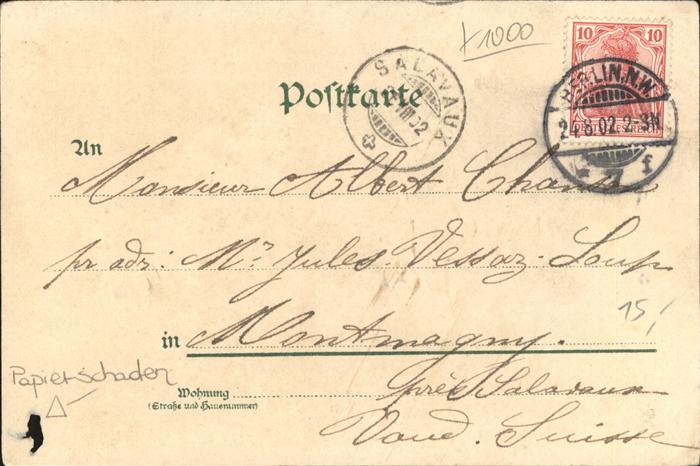 +1000
10 10
SALAVAUX
VIII 02
Postkarte
BERLIN.N.W.
24.8.02.2-3N
DEUTSCHES REICH
* 7 f
An
Monsieur Albert
pr adr: Mr Jules Vessaz-Loup
15,-
in Montmagny.
Papierschaden
Wohnung
(Straße und Hausnummer)
près Salavaux
Vaud. Suisse